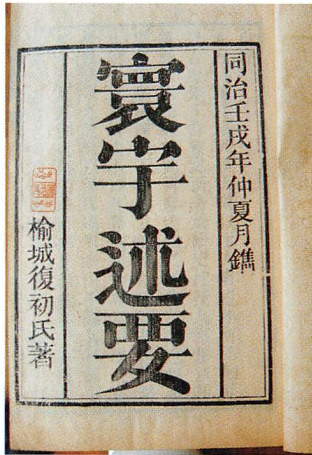 同治壬戌年仲夏月鐫
寰宇述要
榆城復初氏著